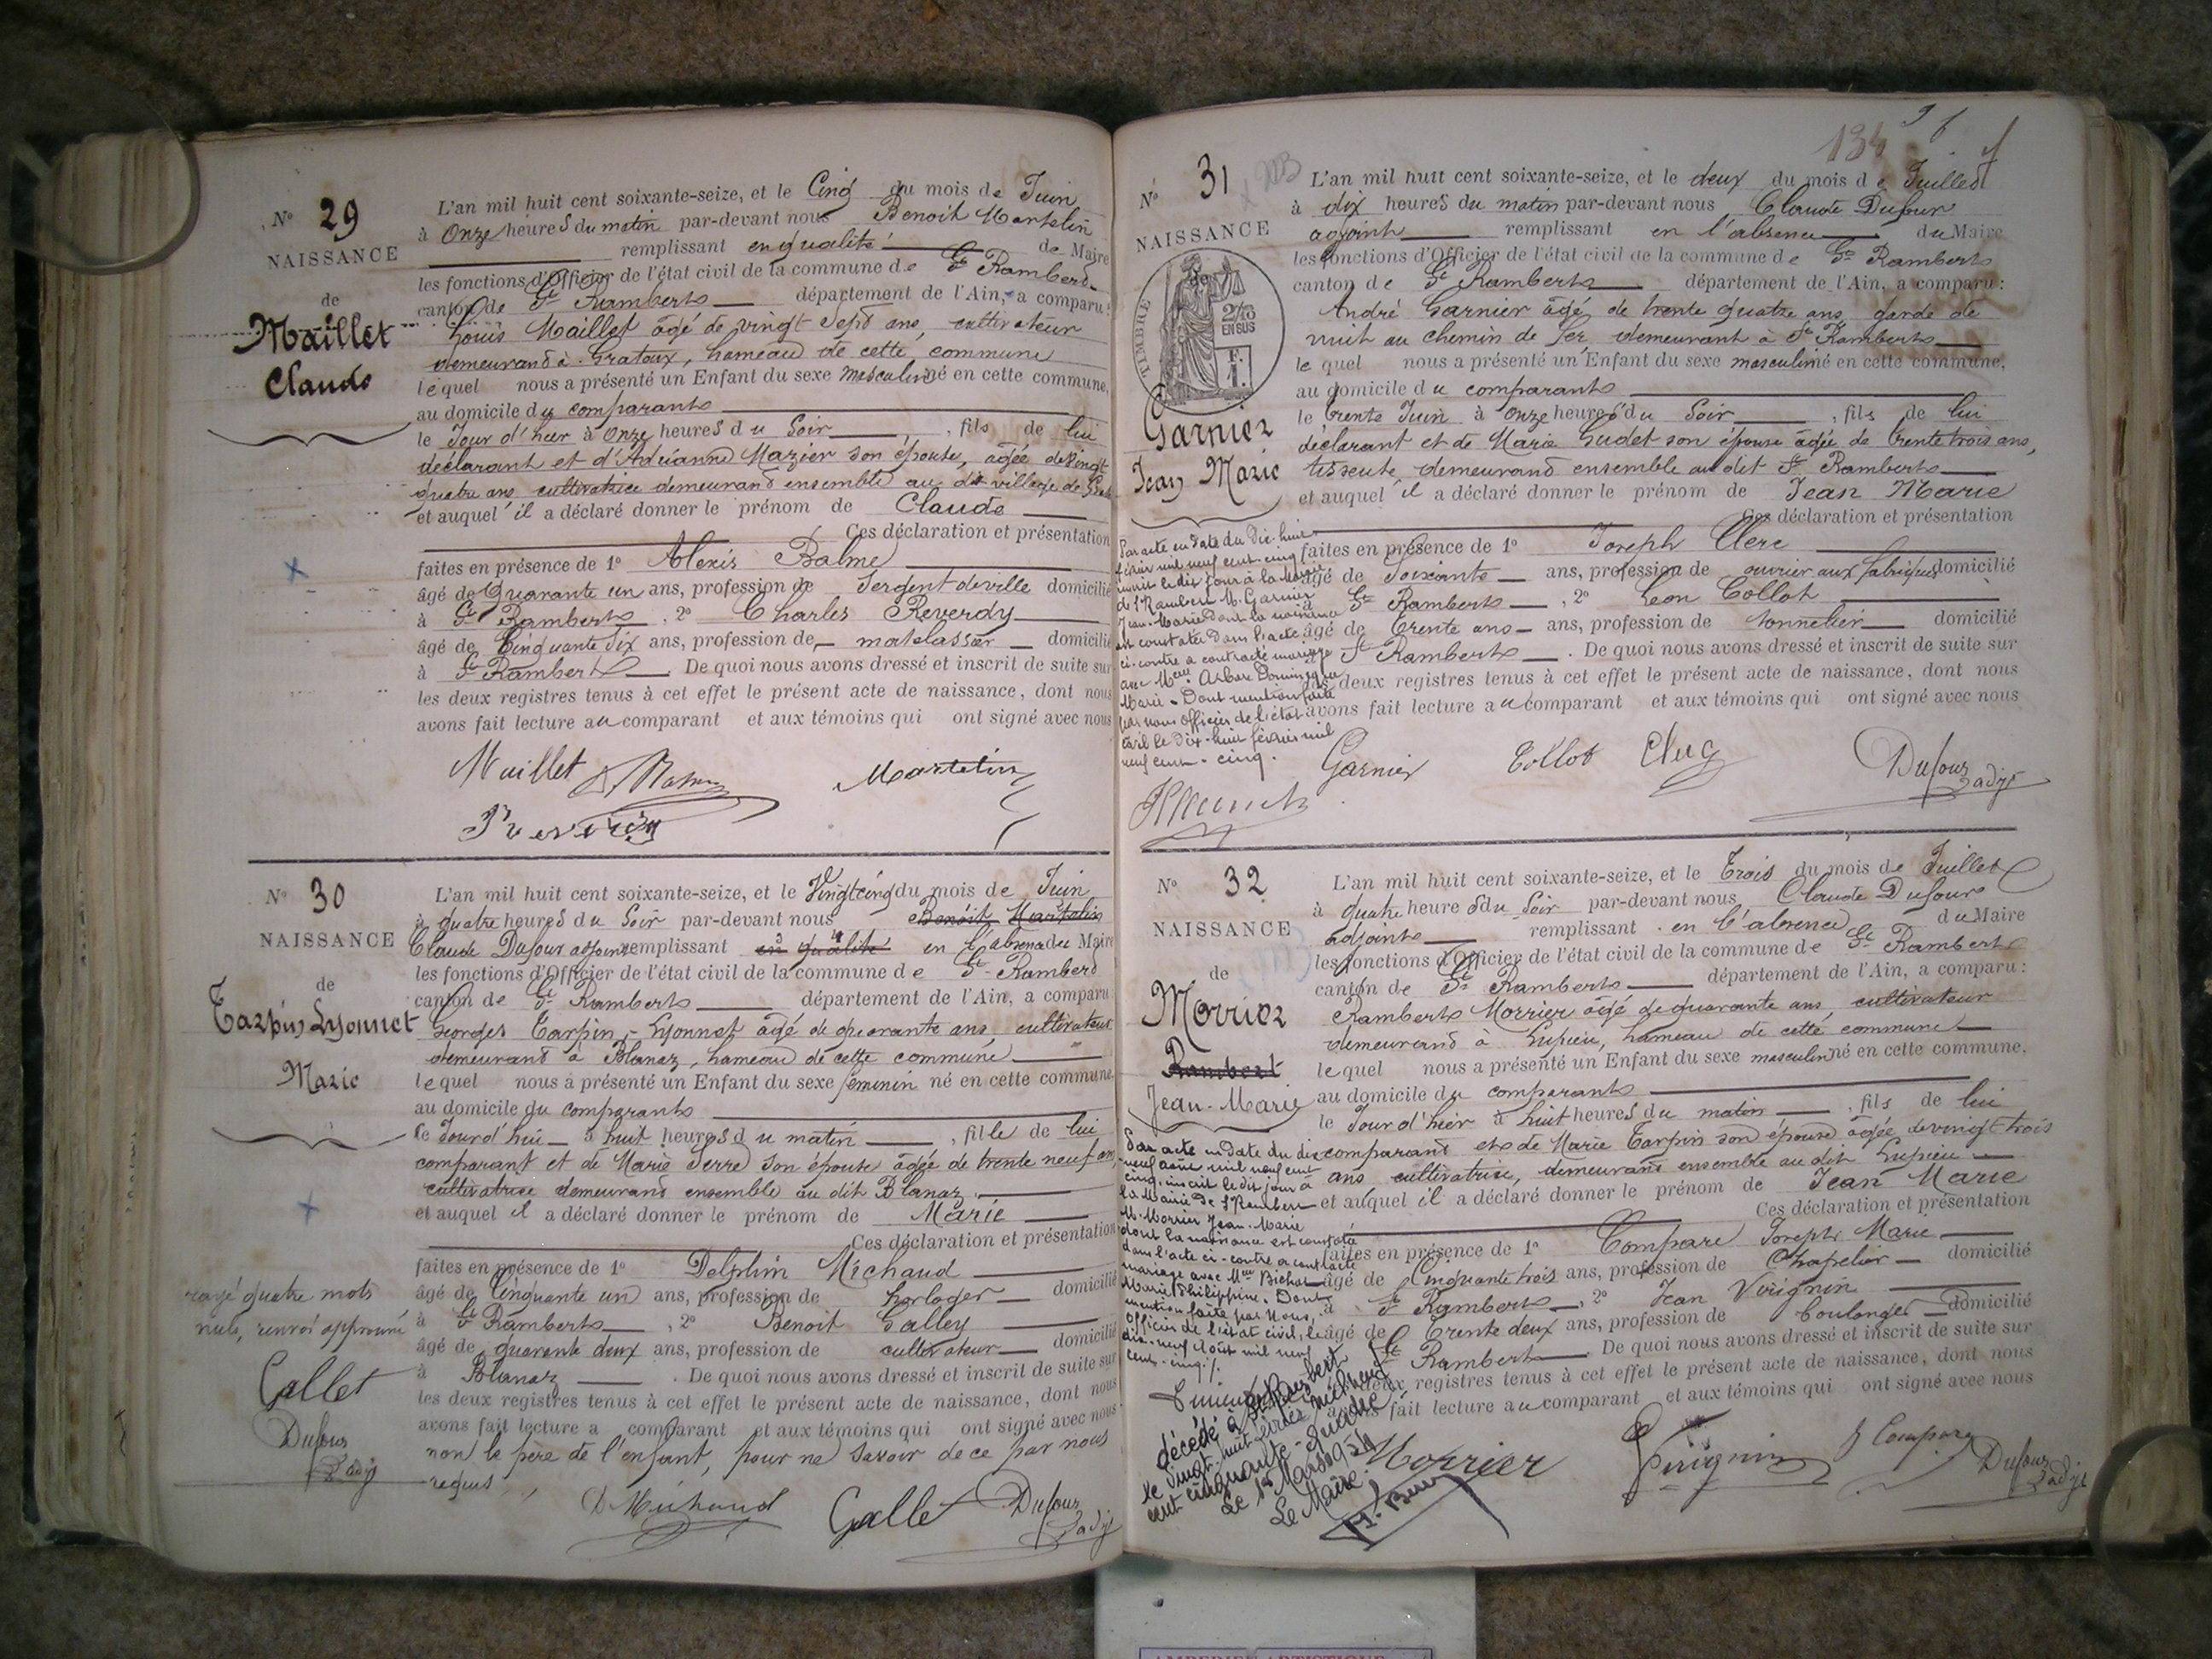 N° 29
NAISSANCE
de
Maillet
Claude
L'an mil huit cent soixante-seize, et le Cinq du mois de Juin
à Onze heures du matin par-devant nous Benoit Martelin
remplissant en qualité de Maire
les fonctions d'Officier de l'état civil de la commune de St Rambert
canton de St Rambert département de l'Ain, a comparu:
Louis Maillet âgé de vingt sept ans, cultivateur
demeurant à Gratoux, hameau de cette commune
lequel nous a présenté un Enfant du sexe masculin né en cette commune,
au domicile du comparant
le Jour d'hier à Onze heures du Soir, fils de lui
déclarant et d'Adrianne Mazier son épouse, agée de vingt
quatre ans cultivatrice demeurant ensemble au dit village de
et auquel il a déclaré donner le prénom de Claude
Ces déclaration et présentation
faites en présence de 1° Alexis Balme
âgé de Quarante un ans, profession de Sergent de ville domicilié
à St Rambert, 2° Charles Reverdy
âgé de Cinquante Six ans, profession de matelassier domicilié
à St Rambert. De quoi nous avons dressé et inscrit de suite sur
les deux registres tenus à cet effet le présent acte de naissance, dont nous
avons fait lecture au comparant et aux témoins qui ont signé avec nous
Maillet Martelin
Reverdy
N° 30
NAISSANCE
de
Tarpin Lyonnet
Marie
L'an mil huit cent soixante-seize, et le Vingt cinq du mois de Juin
à quatre heures du Soir par-devant nous Benoit Martelin
Claude Dufour adjoint remplissant en qualité en l'absence du Maire
les fonctions d'Officier de l'état civil de la commune de St Rambert
canton de St Rambert département de l'Ain, a comparu
Georges Tarpin-Lyonnet agé de quarante ans, cultivateur
demeurant à Blanaz, hameau de cette commune
lequel nous a présenté un Enfant du sexe féminin né en cette commune
au domicile du comparant
le Jourd'hui à huit heures du matin, fille de lui
comparant et de Marie Serre son épouse agée de trente neuf ans
cultivatrice demeurant ensemble au dit Blanaz
et auquel il a déclaré donner le prénom de Marie
Ces déclaration et présentation
faites en présence de 1° Delphin Michaud
âgé de Cinquante un ans, profession de horloger domicilié
à St Rambert, 2° Benoit Galley
âgé de quarante deux ans, profession de cultivateur domicilié
à Blanaz. De quoi nous avons dressé et inscrit de suite sur
les deux registres tenus à cet effet le présent acte de naissance, dont nous
avons fait lecture a comparant et aux témoins qui ont signé avec nous
non le père de l'enfant, pour ne savoir de ce par nous
requis
rayé quatre mots
nuls, renvoi approuvé
Gallet
Dufour
adjt
D Michaud Gallet Dufour
adjt
134
N° 31
NAISSANCE
TIMBRE
2/10
EN SUS
F.
1.
Garnier
Jean Marie
L'an mil huit cent soixante-seize, et le deux du mois de Juillet
à dix heures du matin par-devant nous Claude Dufour
adjoint remplissant en l'absence du Maire
les fonctions d'Officier de l'état civil de la commune de St Rambert
canton de St Rambert département de l'Ain, a comparu:
André Garnier âgé de trente quatre ans garde de
nuit au chemin de fer, demeurant à St Rambert
lequel nous a présenté un Enfant du sexe masculin né en cette commune,
au domicile du comparant
le trente Juin à Onze heures du Soir, fils de lui
déclarant et de Marie Gudet son épouse âgée de trente trois ans,
tisseuse demeurant ensemble au dit St Rambert
et auquel il a déclaré donner le prénom de Jean Marie
Ces déclaration et présentation
faites en présence de 1° Joseph Clerc
âgé de Soixante ans, profession de ouvrier aux fabriques domicilié
à St Rambert, 2° Leon Collot
âgé de trente ans ans, profession de tonnelier domicilié
à St Rambert. De quoi nous avons dressé et inscrit de suite sur
les deux registres tenus à cet effet le présent acte de naissance, dont nous
avons fait lecture au comparant et aux témoins qui ont signé avec nous
Par acte en date du Dix-huit
février mil neuf cent-cinq
inscrit le dit jour à la Mairie
de St Rambert M. Garnier
Jean-Marie dont la naissance
est constatée dans l'acte
ci-contre a contracté mariage
avec Melle
Marie. Dont mention faite
par nous Officier de l'état
civil le Dix-huit février mil
neuf cent-cinq.
Garnier Collot Clerc Dufour
adjt
N° 32
NAISSANCE
de
Morrier
Rambert
Jean-Marie
L'an mil huit cent soixante-seize, et le Trois du mois de Juillet
à quatre heures du Soir par-devant nous Claude Dufour
adjoint remplissant en l'absence du Maire
les fonctions d'Officier de l'état civil de la commune de St Rambert
canton de St Rambert département de l'Ain, a comparu:
Rambert Morrier âgé de quarante ans, cultivateur
demeurant à Lupieu, hameau de cette commune
lequel nous a présenté un Enfant du sexe masculin né en cette commune,
au domicile du comparant
le Jour d'hier à huit heures du matin, fils de lui
comparant et de Marie Tarpin son épouse âgée de vingt-trois
ans cultivatrice, demeurant ensemble au dit Lupieu
et auquel il a déclaré donner le prénom de Jean Marie
Ces déclaration et présentation
faites en présence de 1° Compare Joseph Marie
âgé de Cinquante trois ans, profession de Chapelier domicilié
à St Rambert, 2° Jean Virignin
âgé de trente deux ans, profession de boulanger domicilié
à St Rambert. De quoi nous avons dressé et inscrit de suite sur
les deux registres tenus à cet effet le présent acte de naissance, dont nous
avons fait lecture au comparant et aux témoins qui ont signé avec nous
Par acte en date du dix
neuf août mil neuf cent
cinq, inscrit le dit jour à
la Mairie de St Rambert
M. Morrier Jean-Marie
dont la naissance est constatée
dans l'acte ci-contre a contracté
mariage avec Melle Bichat
Marie Philippine. Dont
mention faite par Nous,
Officier de l'état civil, le
dix-neuf Août mil neuf
cent-cinq
décédé à St Rambert
le vingt-huit février mil neuf
cent cinquante-quatre
Le 1er Mars 1954
Le Maire.
Morrier Virignin J Compare Dufour
adjt